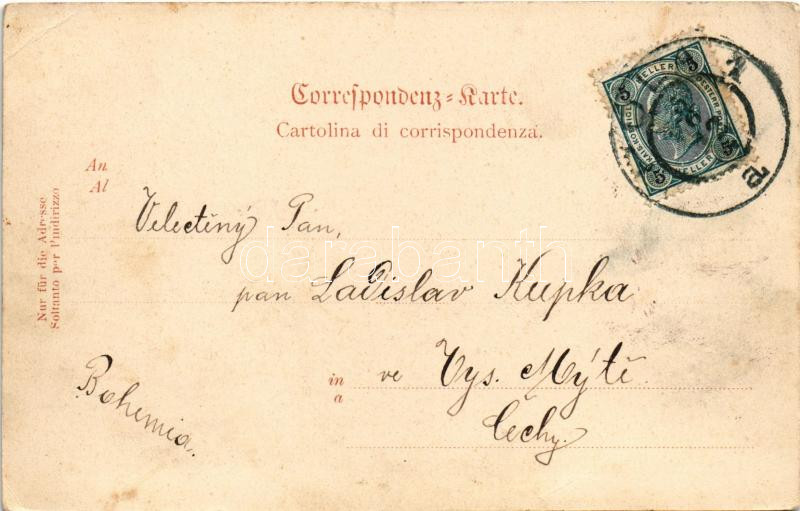 Correspondenz-Karte.
Cartolina di corrispondenza.
An
Al
Nur für die Adresse
Soltanto per l'indirizzo
Velectěný Pan,
pan Ladislav Kupka
in ve Vys. Mýtě
a
Čechy.
Bohemia.
5 HELLER 5
5 HELLER 5
darabanth